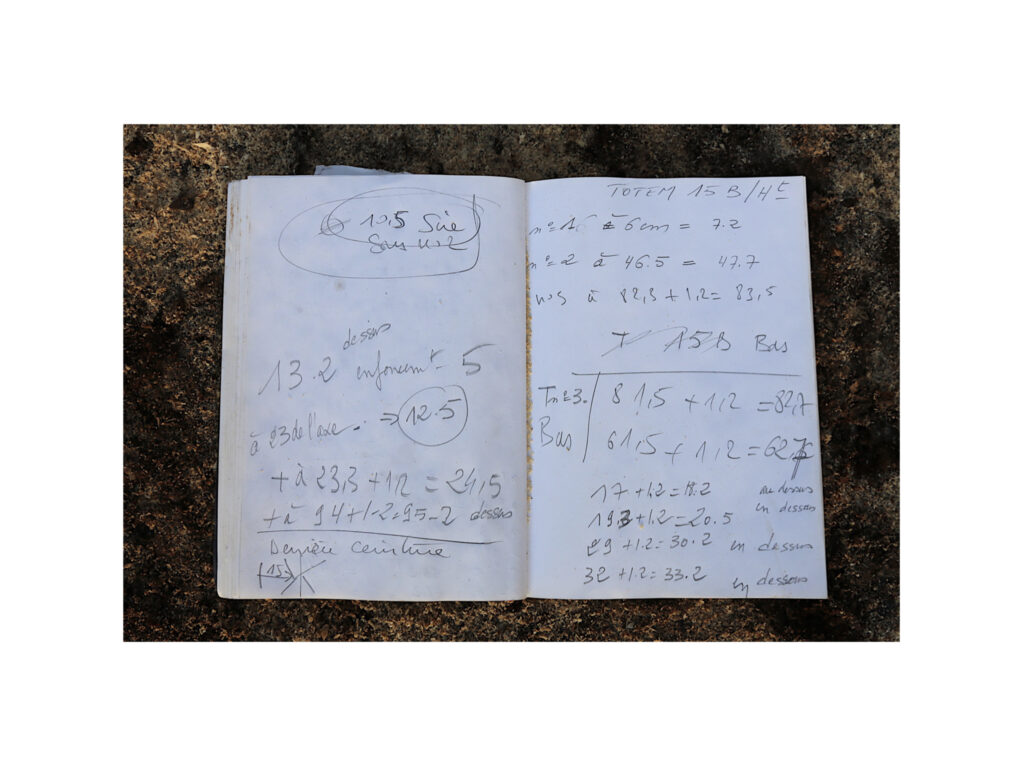 10,5 Scie
Sous n=2
dessus
13.2 enfoncemt 5
à 23 de l'axe. => 12.5
+ à 23,3 + 1,2 = 24,5
+ à 94 + 1-2 = 95-2 dessus
Dernière Ceinture
15
TOTEM 15 B/Ht
n°1 à 6 cm = 7.2
n=2 à 46.5 = 47.7
n°3 à 82,3 + 1,2 = 83,5
T 15B Bas
Tn=3. 81,5 + 1,2 = 82,7
Bas 61,5 + 1,2 = 62,7
17 + 1.2 = 18.2 au dessus
19,3 + 1.2 = 20.5 en dessous
29 + 1.2 = 30.2 en dessous
32 + 1.2 = 33.2 en dessous